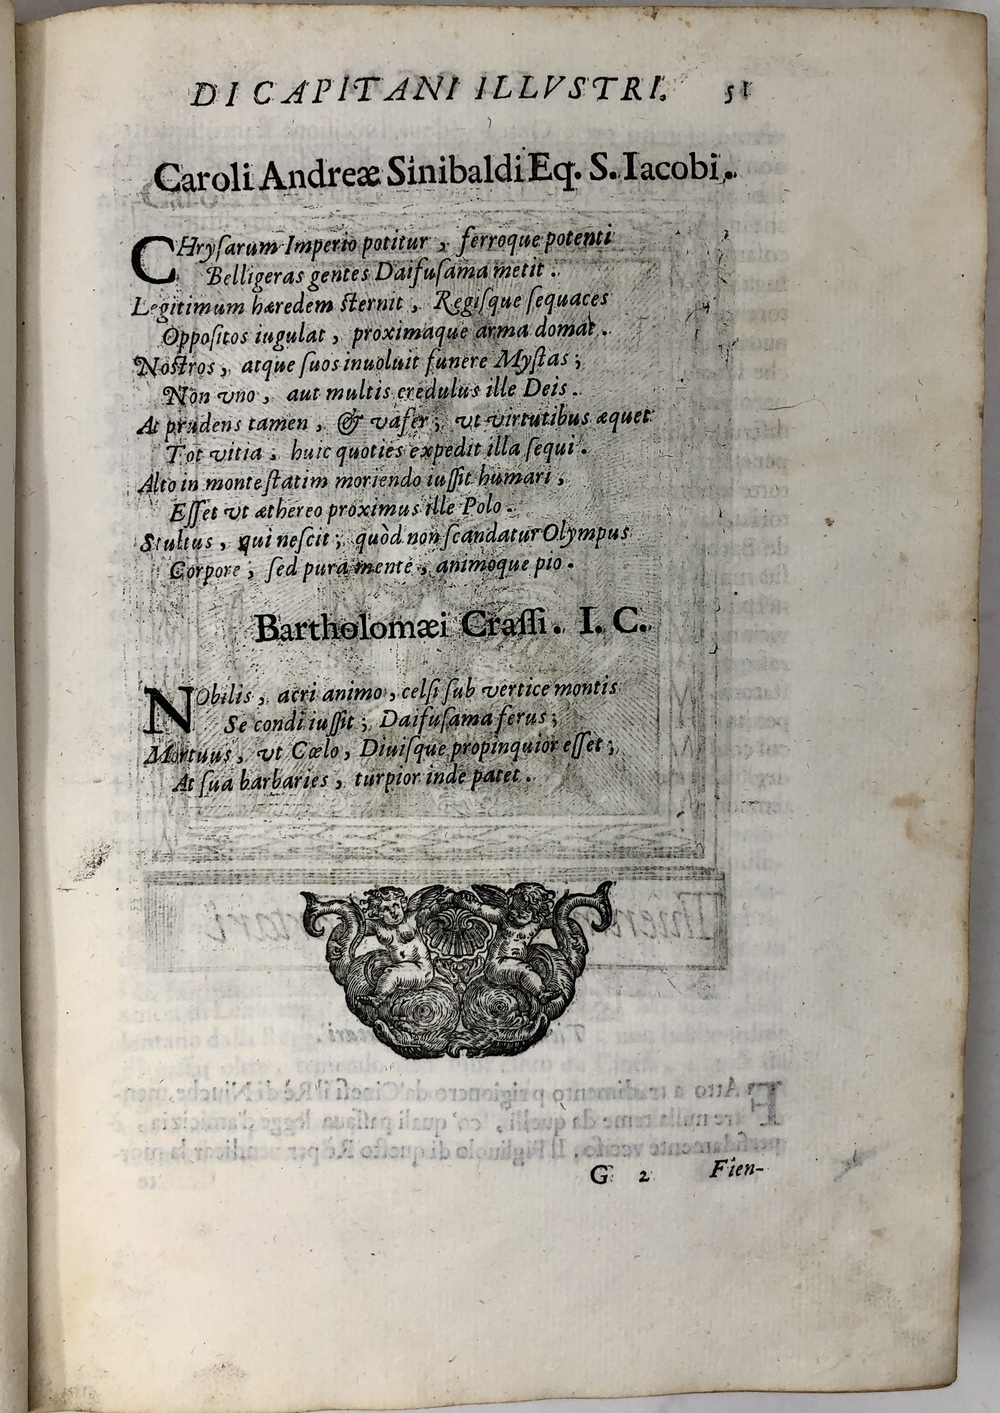 DI CAPITANI ILLVSTRI. 51
Caroli Andreæ Sinibaldi Eq. S. Iacobi.
CHryſarum Imperio potitur, ferroque potenti
Belligeras gentes Daifuſama metit.
Legitimum hæredem ſternit, Regiſque ſequaces
Oppoſitos iugulat, proximaque arma domat.
Noſtros, atque ſuos inuoluit funere Myſtas;
Non vno, aut multis credulus ille Deis.
At prudens tamen, & vafer; vt virtutibus æquet
Tot vitia; huic quoties expedit illa ſequi.
Alto in monte ſtatim moriendo iuſſit humari,
Eſſet vt æthereo proximus ille Polo.
Stultus, qui neſcit; quòd non ſcandatur Olympus
Corpore; ſed pura mente, animoque pio.
Bartholomæi Craſſi. I. C.
NObilis, acri animo, celſi ſub vertice montis
Se condi iuſſit; Daifuſama ferus;
Mortuus, vt Cœlo, Diuiſque propinquior eſſet;
At ſua barbaries, turpior inde patet.
G 2 Fien-